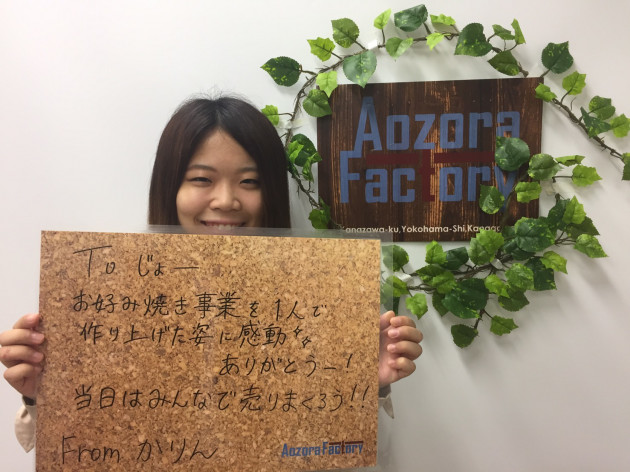 Aozora
Factory
Kanazawa-ku,Yokohama-Shi,Kanag
To じょー
お好み焼き事業を1人で
作り上げた姿に感動
ありがとうー!
当日はみんなで売りまくろう!!
From かりん
Aozora Factory